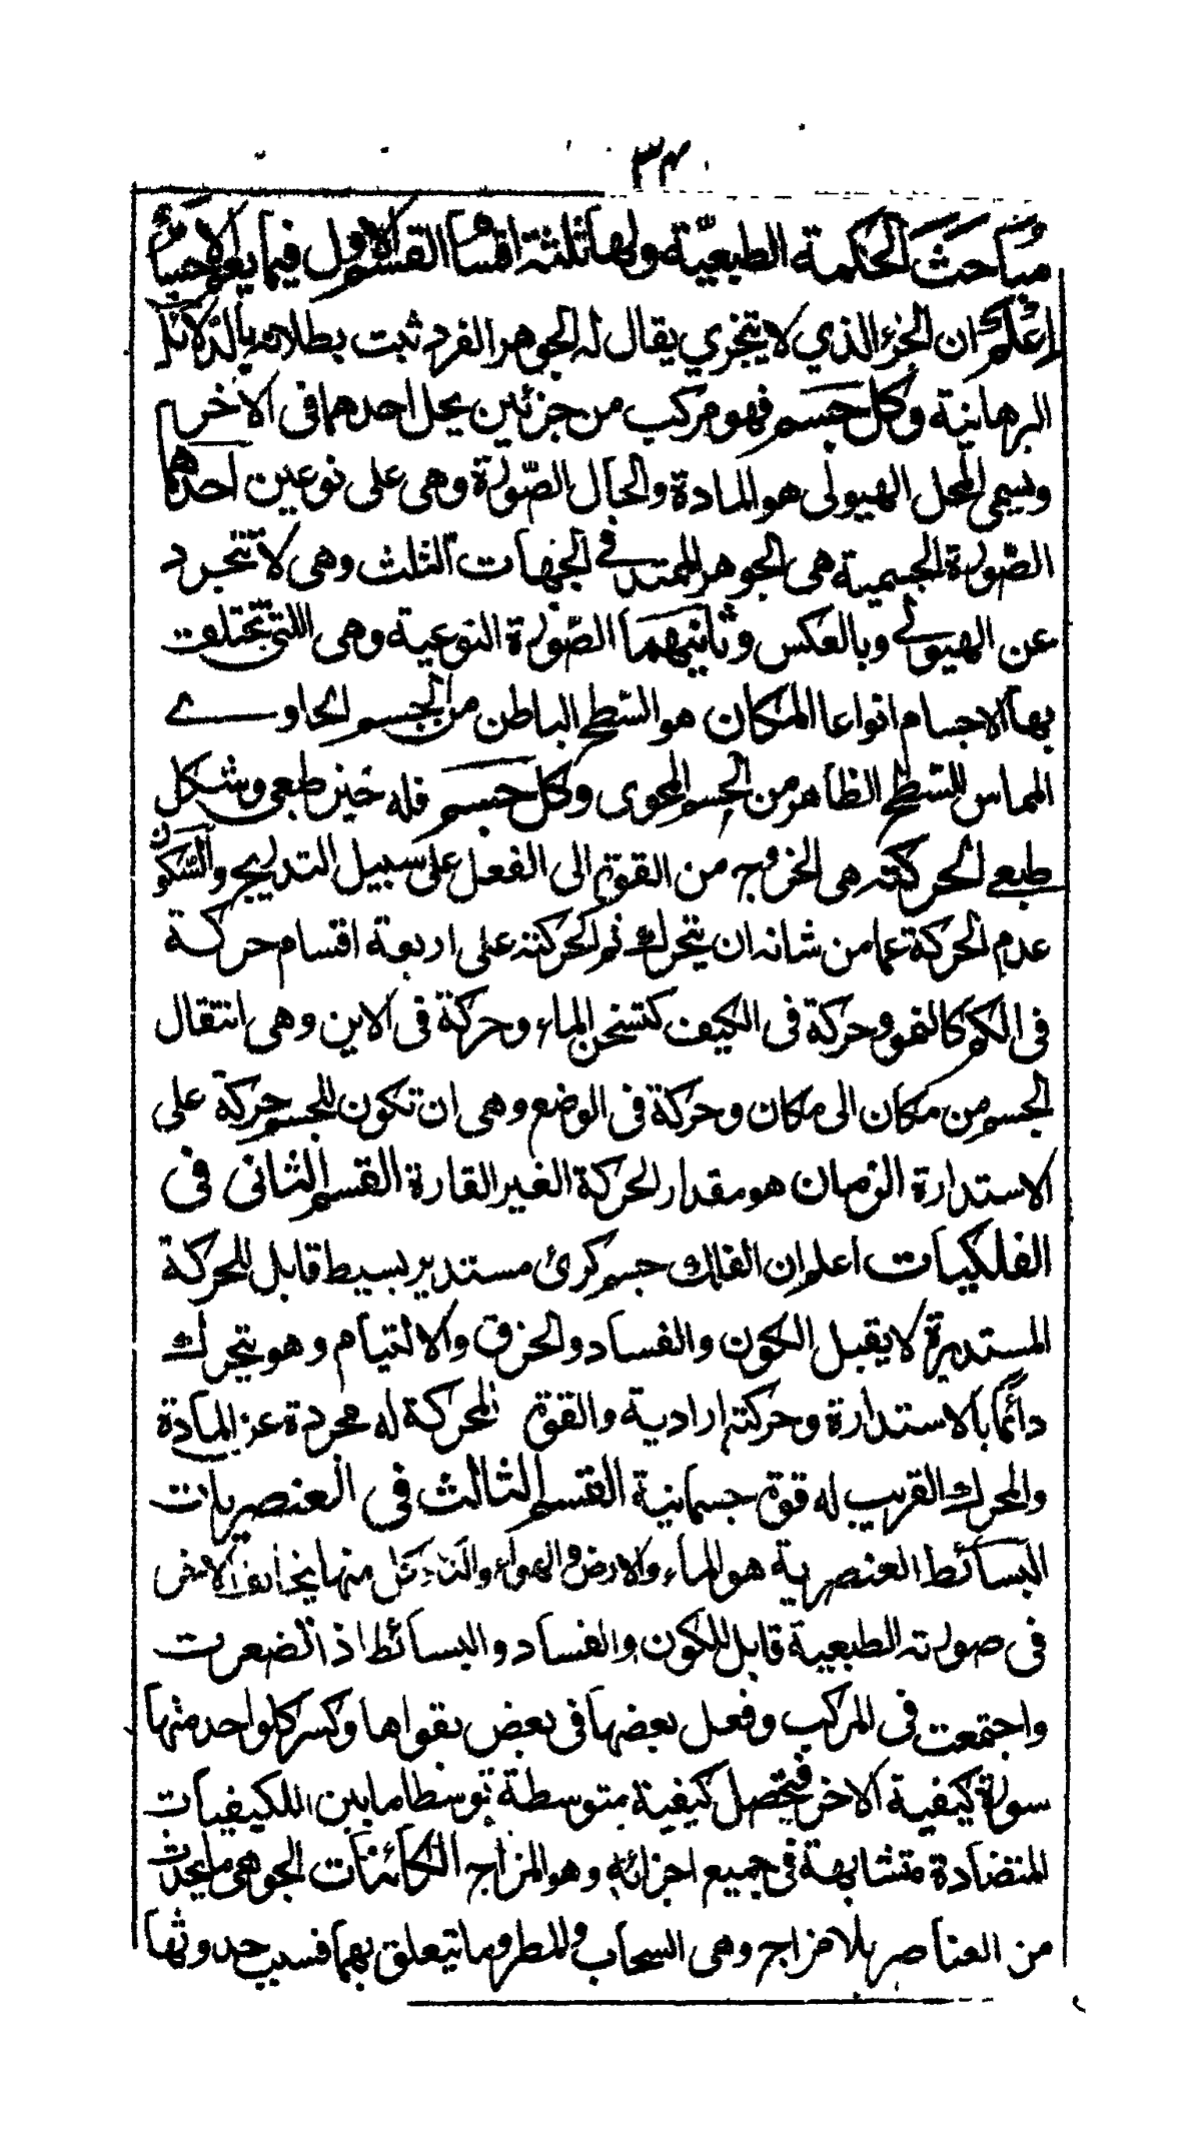 ٣٤
مباحث الحكمة الطبعيّة ولها ثلثة اقسام القسم الاول فيما يعم الاجسام
اعلم ان الجزء الذي لا يتجزي يقال له الجوهر الفرد ثبت بطلانه بالدلائل
البرهانية وكل جسم فهو مركب من جزئين يحل احدهما فى الاخر
ويسمى المحل الهيولى هو المادة والحال الصّورة وهى على نوعين احدهما
الصّورة الجسمية هى الجوهر الممتد فے الجهات الثلث وهى لا تتجرد
عن الهيولے وبالعكس وثانيهما الصّورة النوعية وهى اللتى تختلف
بها الاجسام انواعا المكان هو السّطح الباطن من الجسم الحاوے
المماس للسّطح الظاهر من الجسم المحوى وكل جسم فله حيز طبعى وشكل
طبعے الحركة هى الخروج من القوة الى الفعل على سبيل التدريج والسّكون
عدم الحركة عما من شانه ان يتحرك ثم الحركة على اربعة اقسام حركة
فى الكم كالنمو وحركة فى الكيف كتسخن الماء وحركة فى الاين وهى انتقال
الجسم من مكان الى مكان وحركة فى الوضع وهى ان تكون للجسم حركة على
الاستدارة الزمان هو مقدار الحركة الغير القارة القسم الثانى فى
الفلكيات اعلم ان الفلك جسم كرئ مستدير بسيط قابل للحركة
المستديرة لا يقبل الكون والفساد والخرق والالتيام وهو يتحرك
دائما بالاستدارة وحركته ارادية والقوة المحركة له مجردة عن المادة
والمحرك القريب له قوة جسمانية القسم الثالث فى العنصريات
البسائط العنصرية هو الماء والارض والهواء والنار كل منها يخالف الاخر
فى صورته الطبعية قابل للكون والفساد والبسائط اذا تضعرت
واجتمعت فى المركب وفعل بعضها فى بعض بقواها وكسر كلواحد منها
سورة كيفية الاخر فيحصل كيفية متوسطة توسطا ما بين اللكيفيات
المتضادة متشابهة فى جميع اجزائه وهو المزاج الكائنات الجو هى ما يحدث
من العناصر بلا مزاج وهى السحاب والمطر وما يتعلق بهما فسبب حدوثها